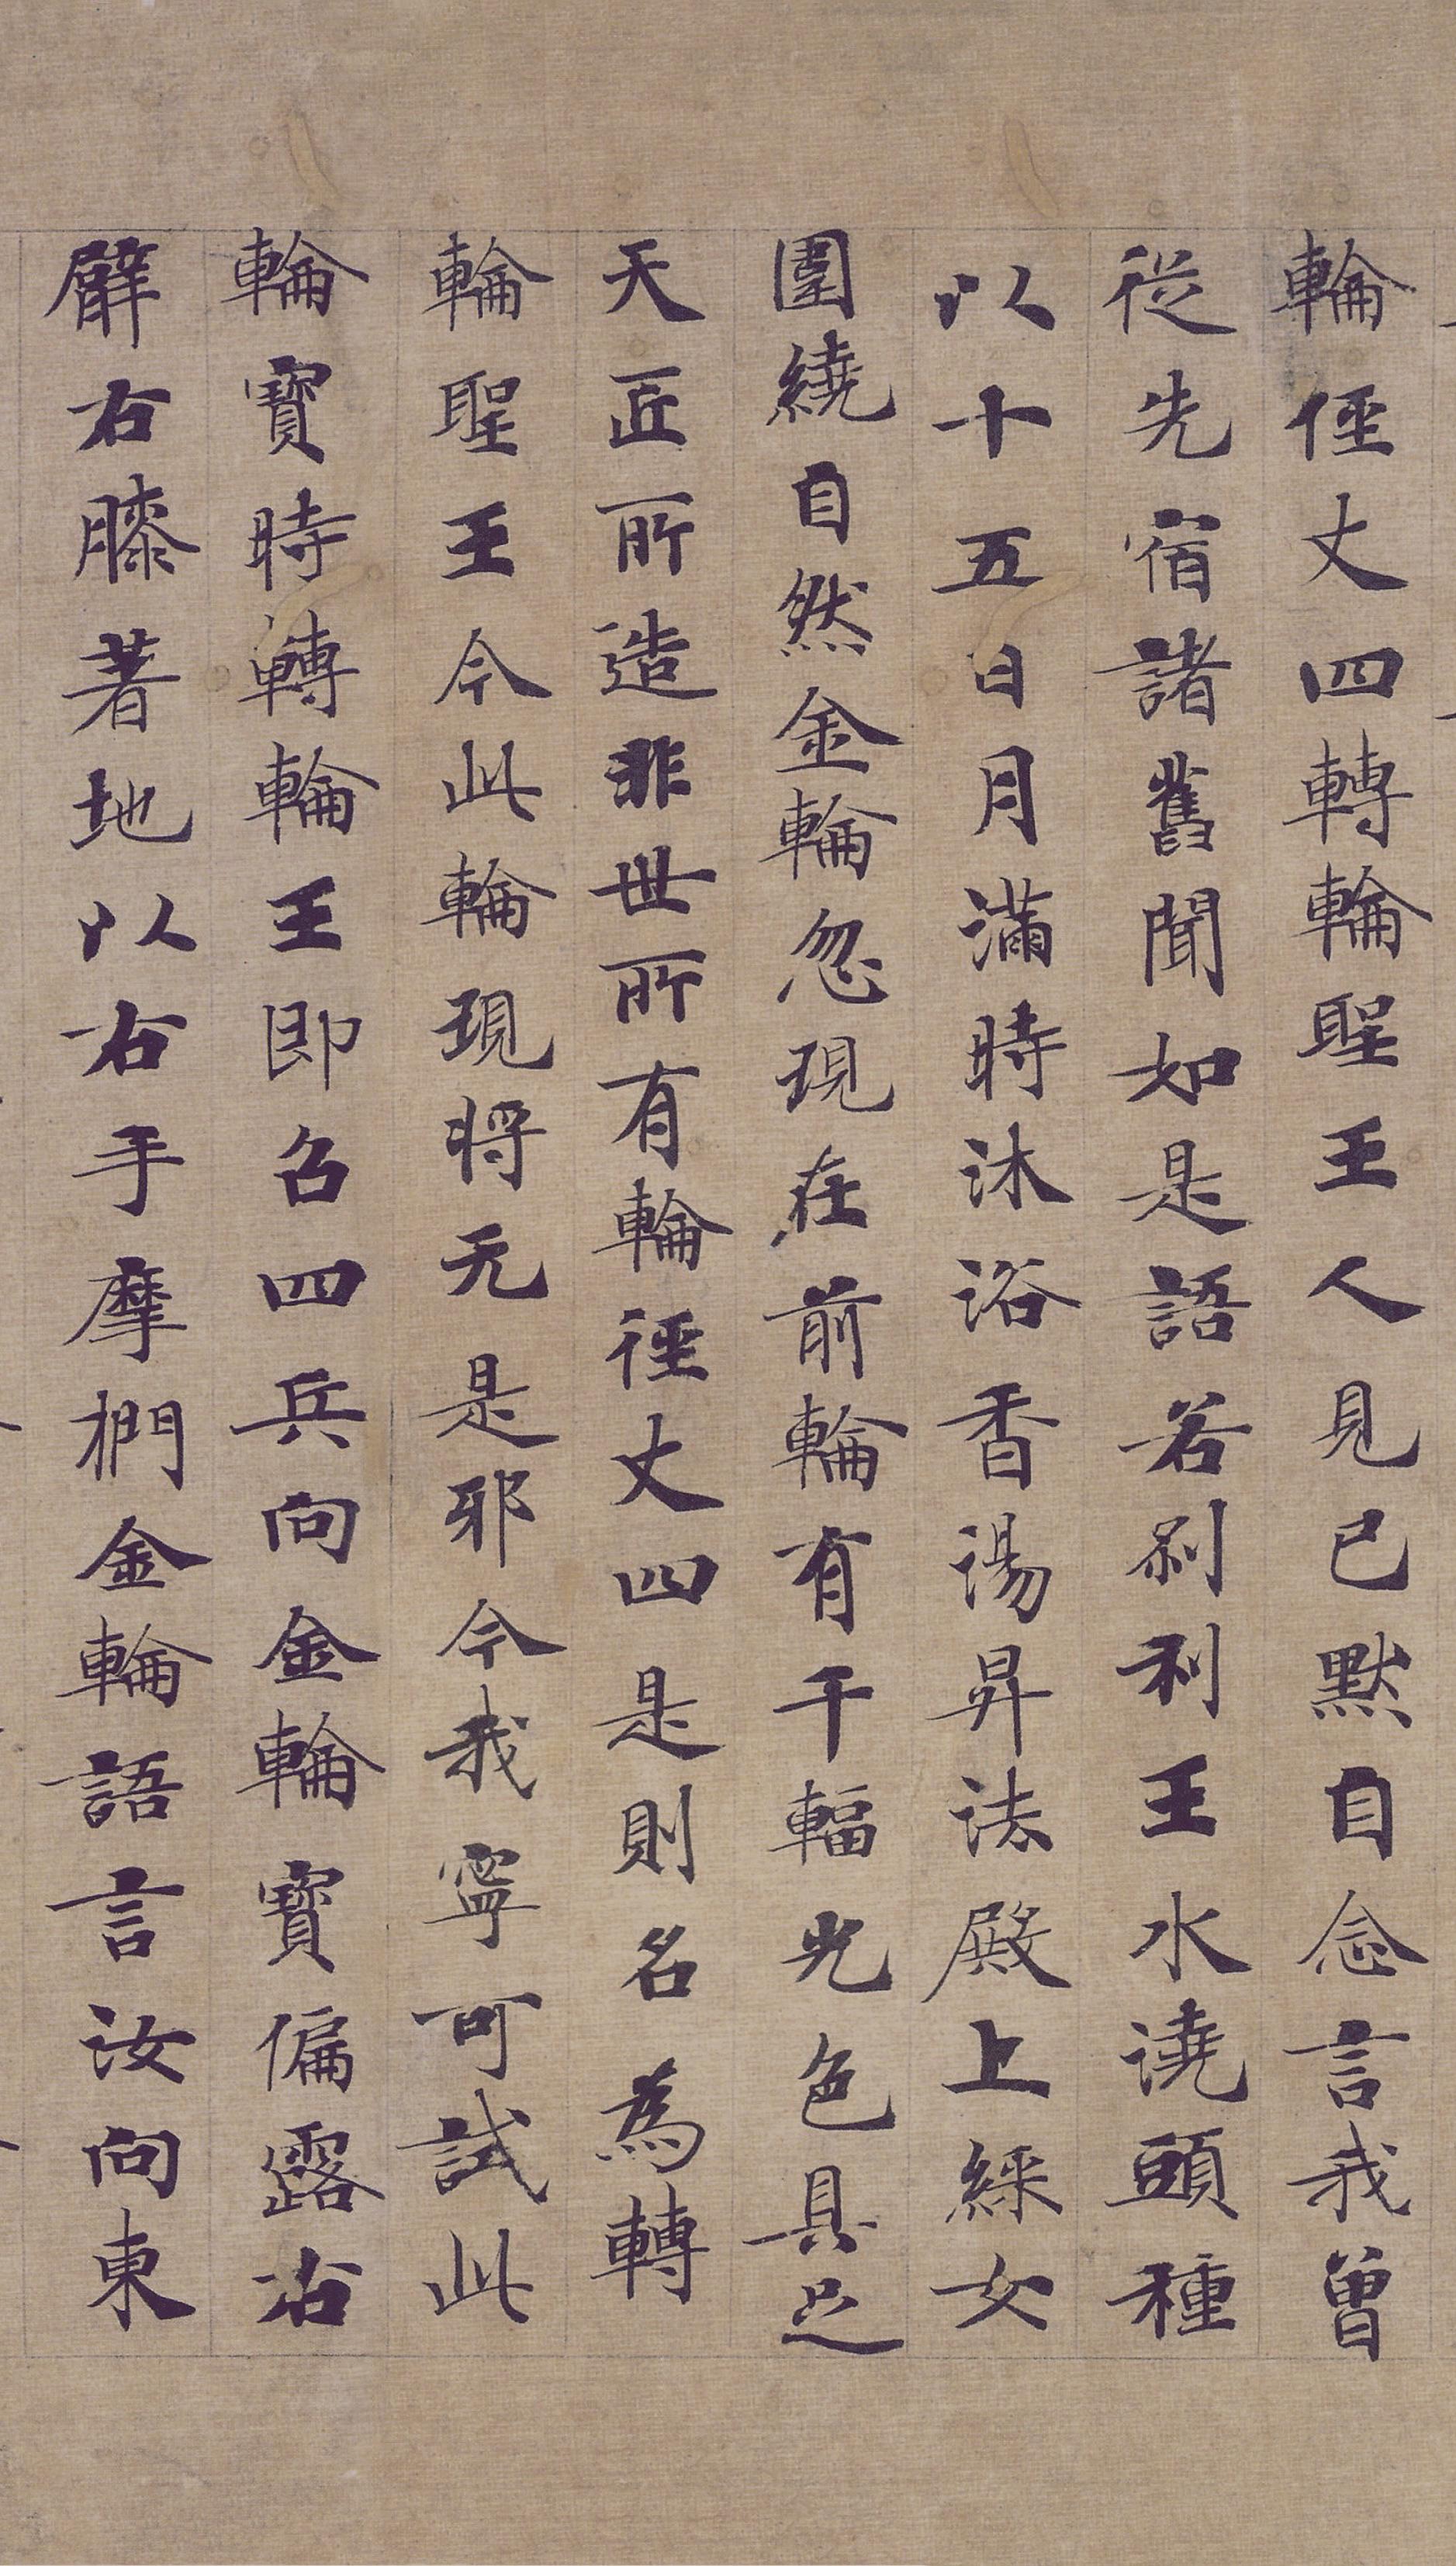 輪侄丈四轉輪聖王人見已默自念言我曾
從先宿諸舊聞如是語若刹利王水澆頭種
以十五日月滿時沐浴香湯昇法殿上綵女
圍繞自然金輪忽現在前輪有千輻光色具足
天匠所造非世所有輪徑丈四是則名為轉
輪聖王今此輪現將无是邪今我寧可試此
輪寶時轉輪王即召四兵向金輪寶偏露右
臂右膝著地以右手摩捫金輪語言汝向東